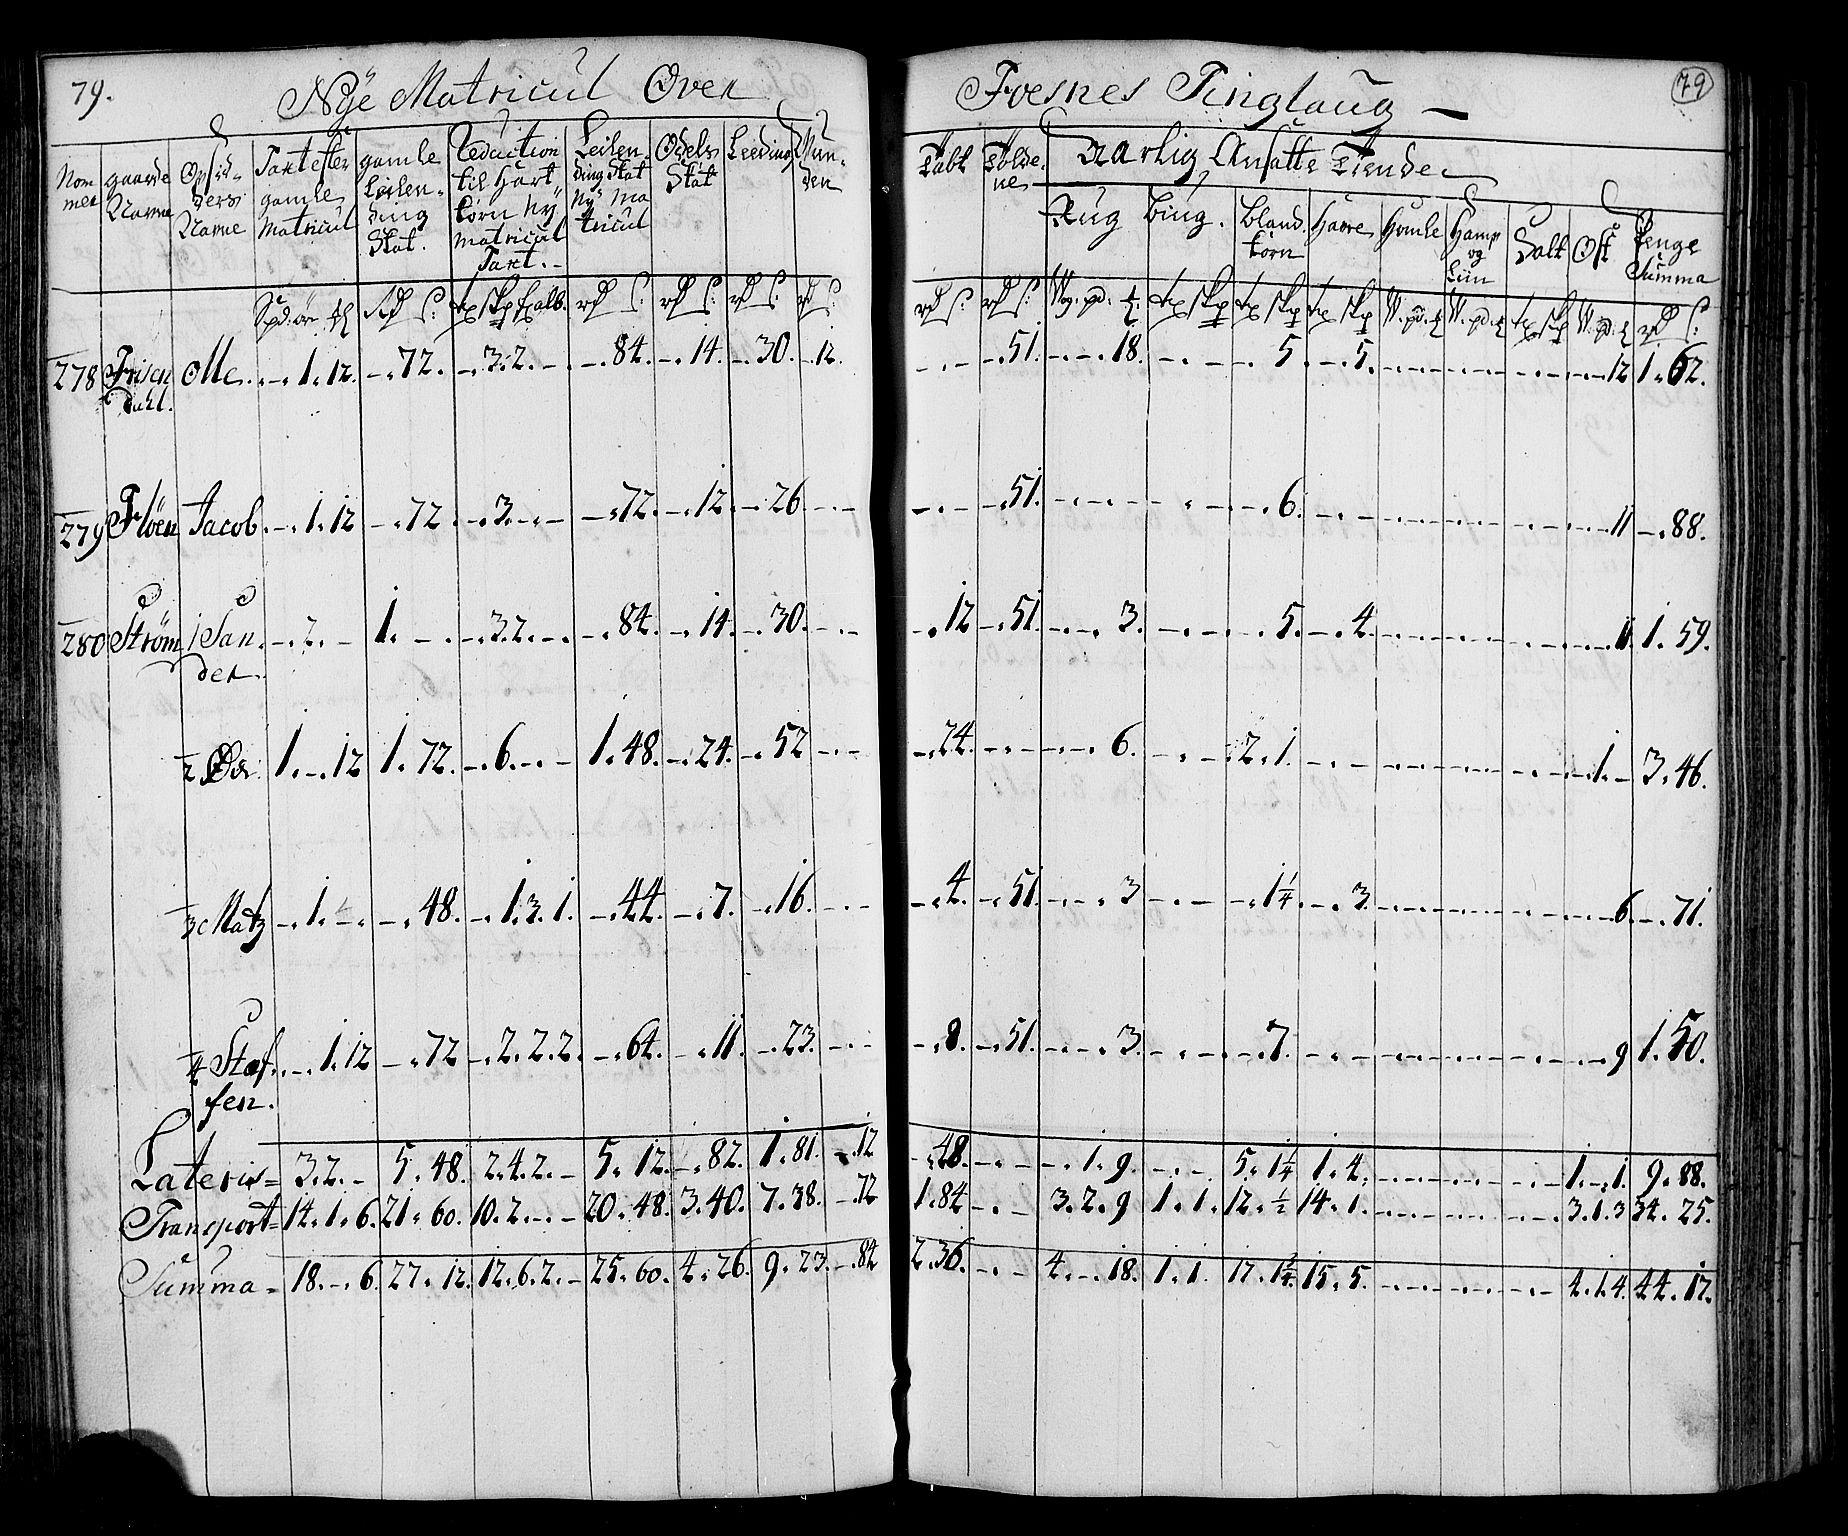 79. Nÿe Matricul Over Foesnes Tinglaug — 79
Nom mer | gaarde Navne | Opsid-ders Navne | Taxt efter gamle Matricul | gamle Leilen-ding Skat. | Reduction til Hart korn Ny Matricul Taxt. | Leilen ding Skat Ny Ma tricul | Odels Skat | Leeding | | Aarlig Ansatte Tiende
Rug | Biug. | Bland. korn | Havre | Homle | Hamp og Liin | Salt | Ost | Penge Summa
278 Frisen dahl. Olle. -. 1. 12. -. 72. -. 3. 2. -. 84. -. 14. -. 30. -. 12. -. - -. 51. -. -. 18. -. - -. 5. -. 5. 12 1. 62.
279 Fløen Jacob. -. 1. 12 -. 72. -. 3. -. - -. 72. -. 12. -. 26 -. - -. - -. 51. -. -. - -. - -. 6. -. - 11 -. 88.
280 Strøm 1 San-der. -. 2. - 1. - -. 3. 2. - -. 84. -. 14. -. 30. -. - -. 12 -. 51. -. -. 3. -. - -. 5. -. 4. 11. 1. 59.
2 Ole 1. -. 12 1. 72. -. 6. -. - 1. 48. -. 24. -. 52 -. - -. 24. -. - -. -. 6. -. - -2. 1. -. - -. 1. - 3. 46.
3 Matz -. 1. -. -. 48. -. 1. 3. 1. -. 44. -. 7. -. 16. -. - -. 4. -. 51. -. -. 3 -. - -. 1¼ -. 3. 6. -. 71.
4 Staf-fen. -. 1. 12 -. 72 -. 2. 2. 2. -. 64. -. 11. -. 23. -. - -. 8. -. 51. -. -. 3. -. - -. 7. -. - 9 1. 50.
Lateris = 3. 2. - 5. 48. 2. 4. 2. - 5. 12. -. 82. 1. 81. -. 12 -. 48. -. - -. 1. 9. -. - 5. 1¼ 1. 4. 1. -. 1. 9. 88.
Transport = 14. 1. 6. 21. 60. 10. 2. -. - 20. 48. 3. 40. 7. 38. -. 72 1. 84 -. - 3. 2. 9 1. 1. 12. ½ 14. 1. 3. 1. 3 34. 25.
Summa = 18. -. 6. 27. 12. 12. 6. 2. - 25. 60. 4. 26. 9. 23. -. 84 2. 36. -. - 4. -. 18. 1. 1. 17. 1¾ 15. 5. 4. 1. 4. 44. 17.